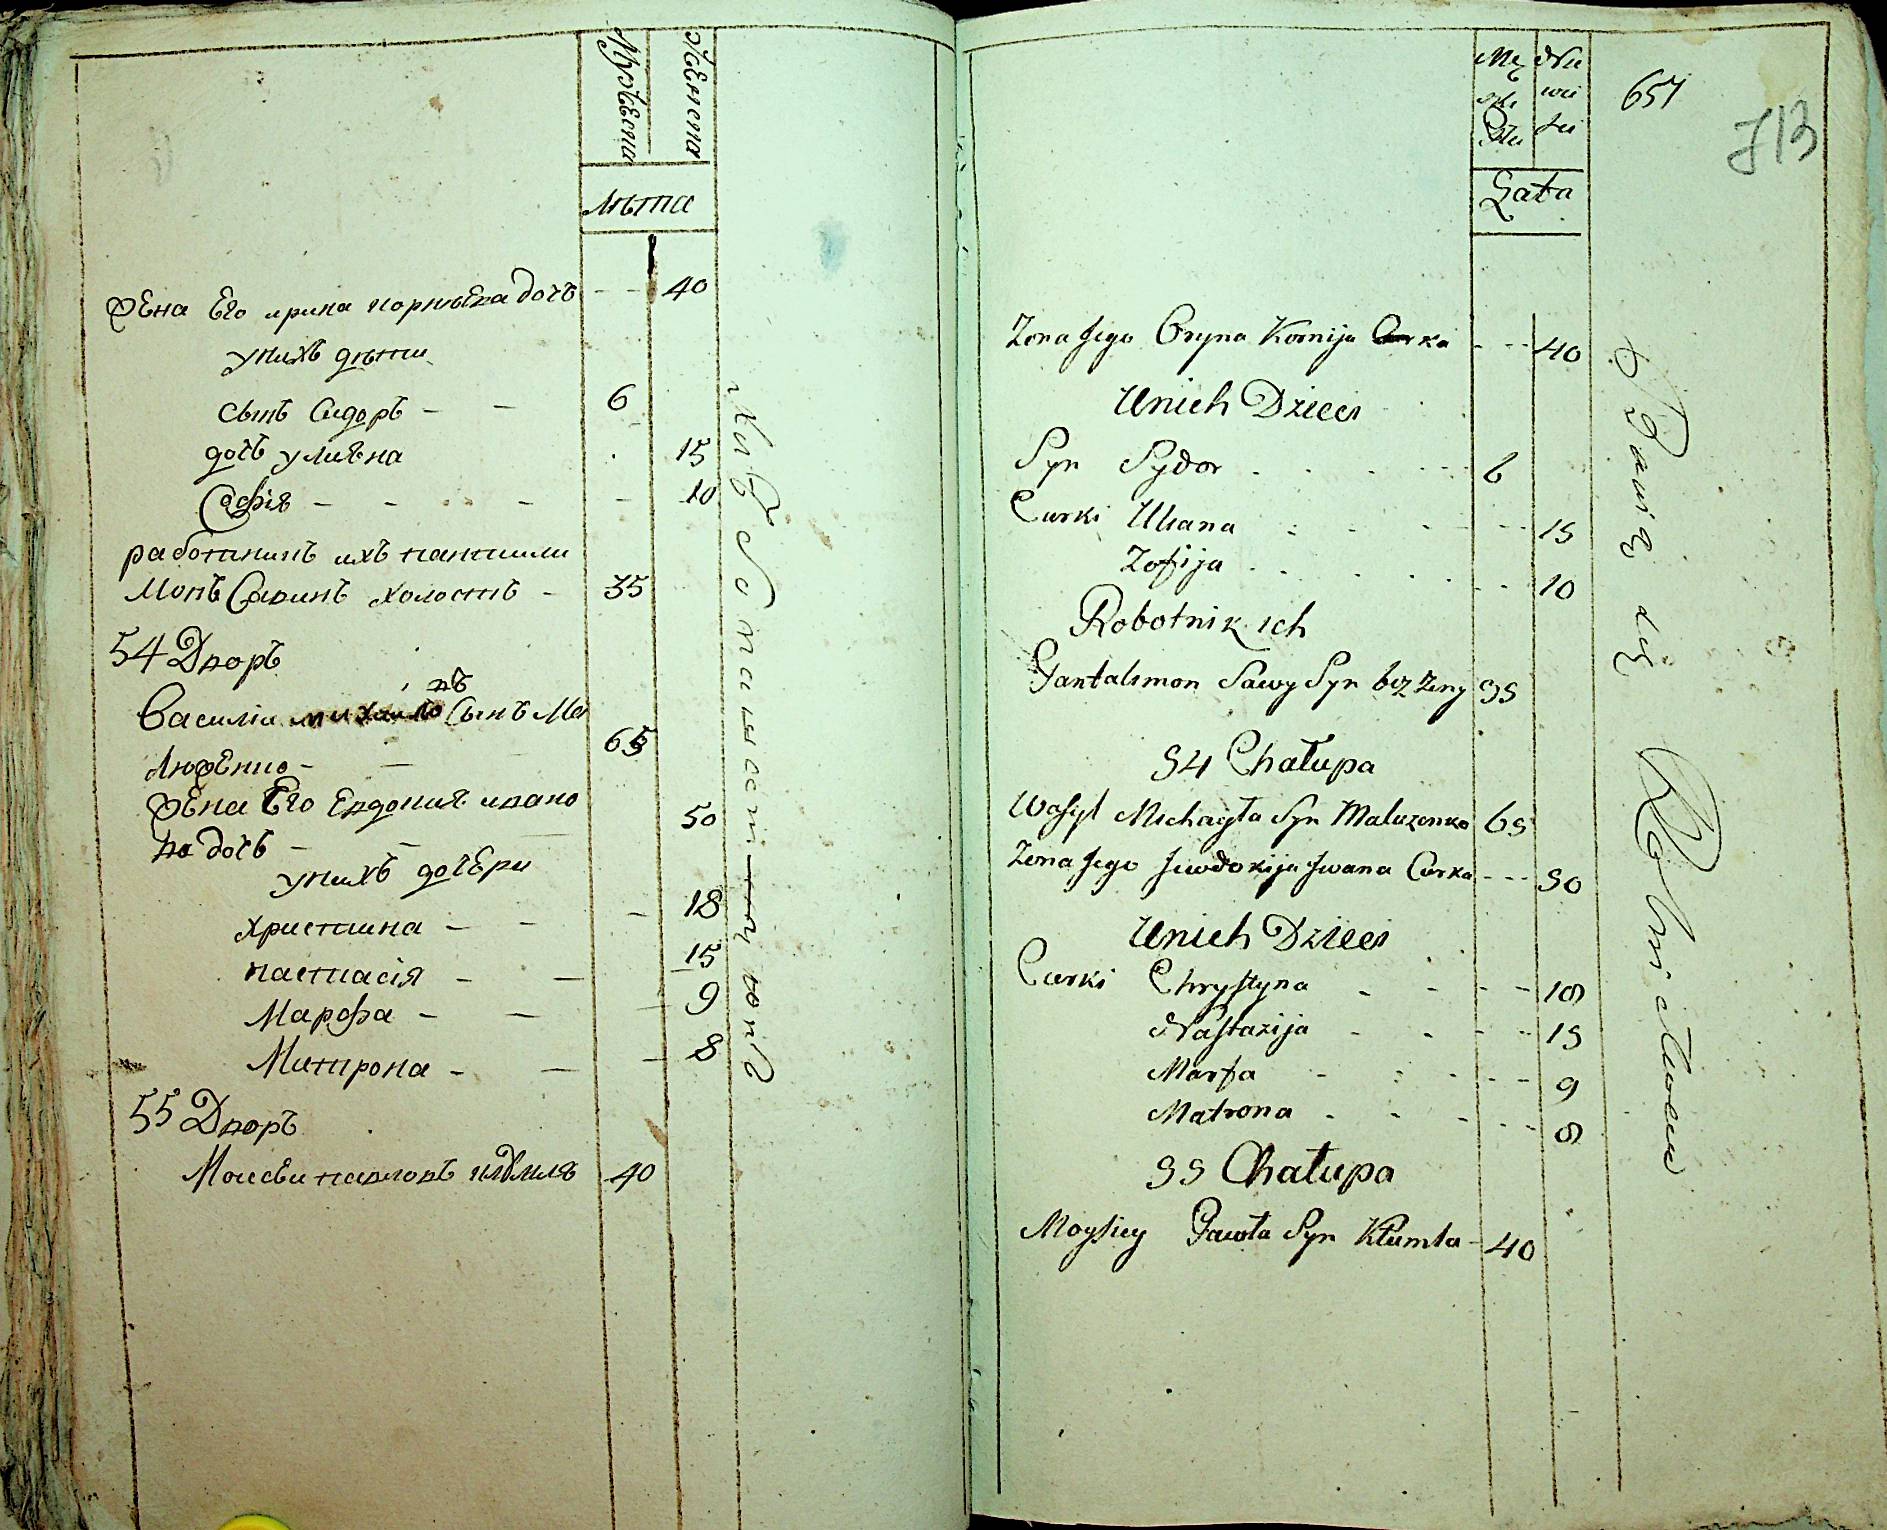 Мужеска Женска
лѣта
жена Его ирина корнѣева дочь - - 40
у нихъ дѣти
сынъ Сидоръ - - 6
дочь улияна 15
Софія - - - - 10
работникъ ихъ пантили
монъ Савинъ холостъ - 35
54 Дворъ
Василіи михайловъ Сынъ Ма
люженко - - 65
жена Его Евдокия ивано
ва дочь - - 50
у нихъ дочери
христина - - - 18
настасія - - 15
Марфа - - 9
Матрона - - 8
55 Дворъ
Моисеи павловъ 40
657
713
Lata
Zona Jego Oryna Kornija Curka - - - 40
Unich Dzieci
Syn Sydor 6
Curki Uliana 15
Zofija 10
Robotnik ich
Pantalimon Sawy Syn bez Zeny 35
54 Chałupa
Wasyl Michayła Syn Maluzenko 65
Zona Jego Jewdokija Jwana Curka - - - 50
Unich Dzieci
Curki Chrystyna - - - - 18
Nastazija - - - - 15
Marfa - - - - 9
Matrona - - - - 8
55 Chałupa
Moysiey Pawła Syn Kłumla - 40
Bawią się Rolnictwem